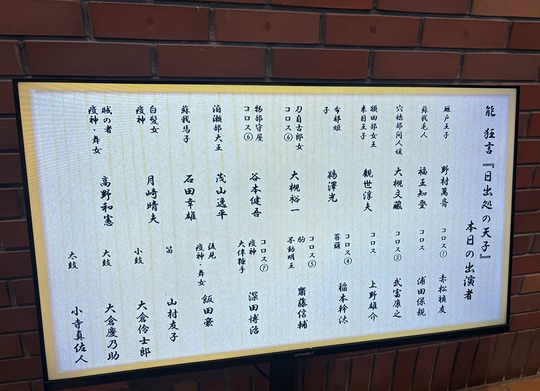 能 狂言『日出処の天子』
本日の出演者
厩戸王子 野村萬斎
蘇我毛人 福王知登
穴穂部間人媛 大槻文藏
額田部女王
来目王子 観世淳夫
布都姫
子 鵜澤光
刀自古郎女
コロス⑥ 大槻裕一
物部守屋
コロス⑥ 谷本健吾
泊瀬部大王 茂山逸平
蘇我馬子 石田幸雄
白髪女
疫神 月崎晴夫
賊の者
疫神・舞女 高野和憲
コロス① 赤松禎友
コロス 浦田保親
コロス② 武富康之
コロス 上野雄介
コロス④
菩薩 稲本幹汰
コロス⑤
駒
不動明王 齋藤信輔
コロス⑦
疫神
深田博治
後見
疫神・舞女 飯田豪
笛 山村友子
小鼓 大倉伶士郎
大鼓 大倉慶乃助
太鼓 小寺真佐人